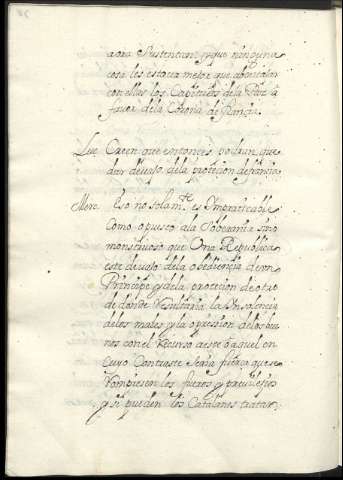 aora sustentan, y que ninguna
cosa les estava mejor que abentajar
con ellas los Capitulos dela Paz a
favor dela Corona de Francia.
Luc. Creen que entonces podrian que
dar devajo dela protecion de francia
Merc. Eso no solamte. es Impraticable
Como opuesto ala Soberania sino
monstruoso que Una Republica
este devajo dela obediencia de un
Principe y dela protecion de otro
de donde Resultaria la Insolencia
delos males y la opresion delos bue
nos con el Recurso a este ò a quel en
cuyo Contraste Seria fuerça que se
Rompiesen los fueros y privilegios
y si pueden los Catalanes tratar